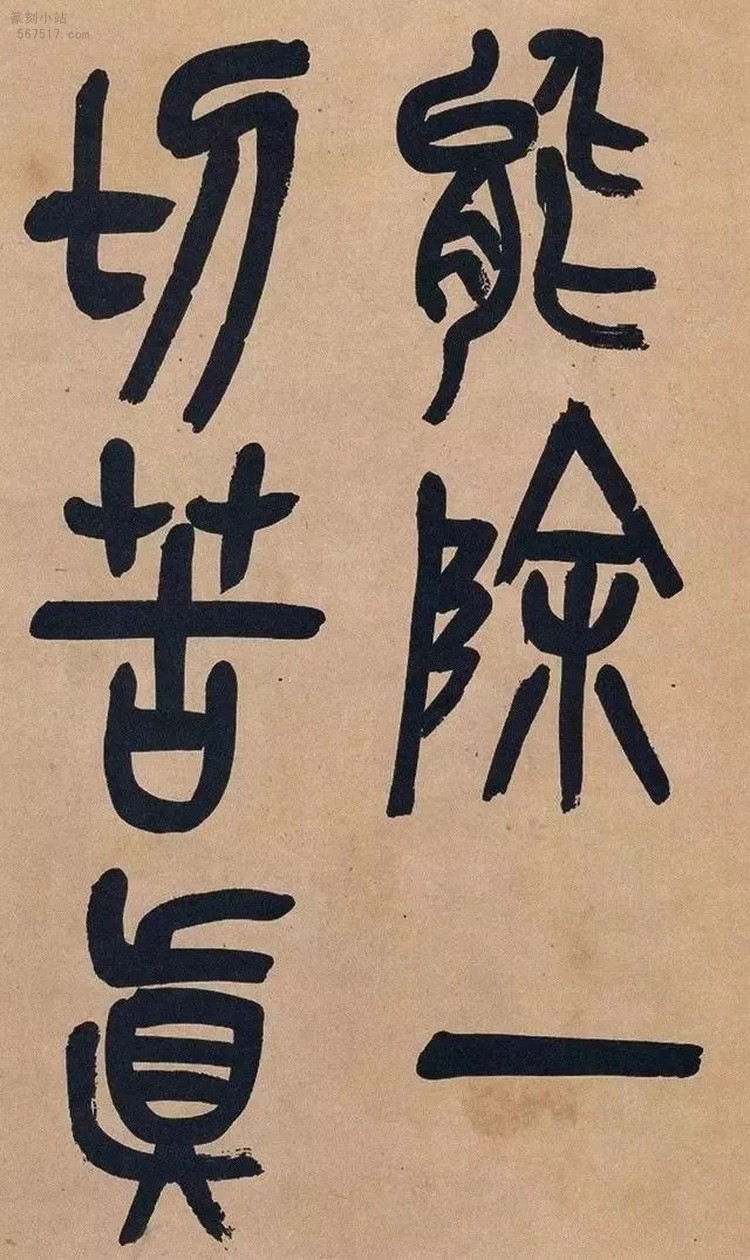 能除一
切苦眞
篆刻小站
567517.com